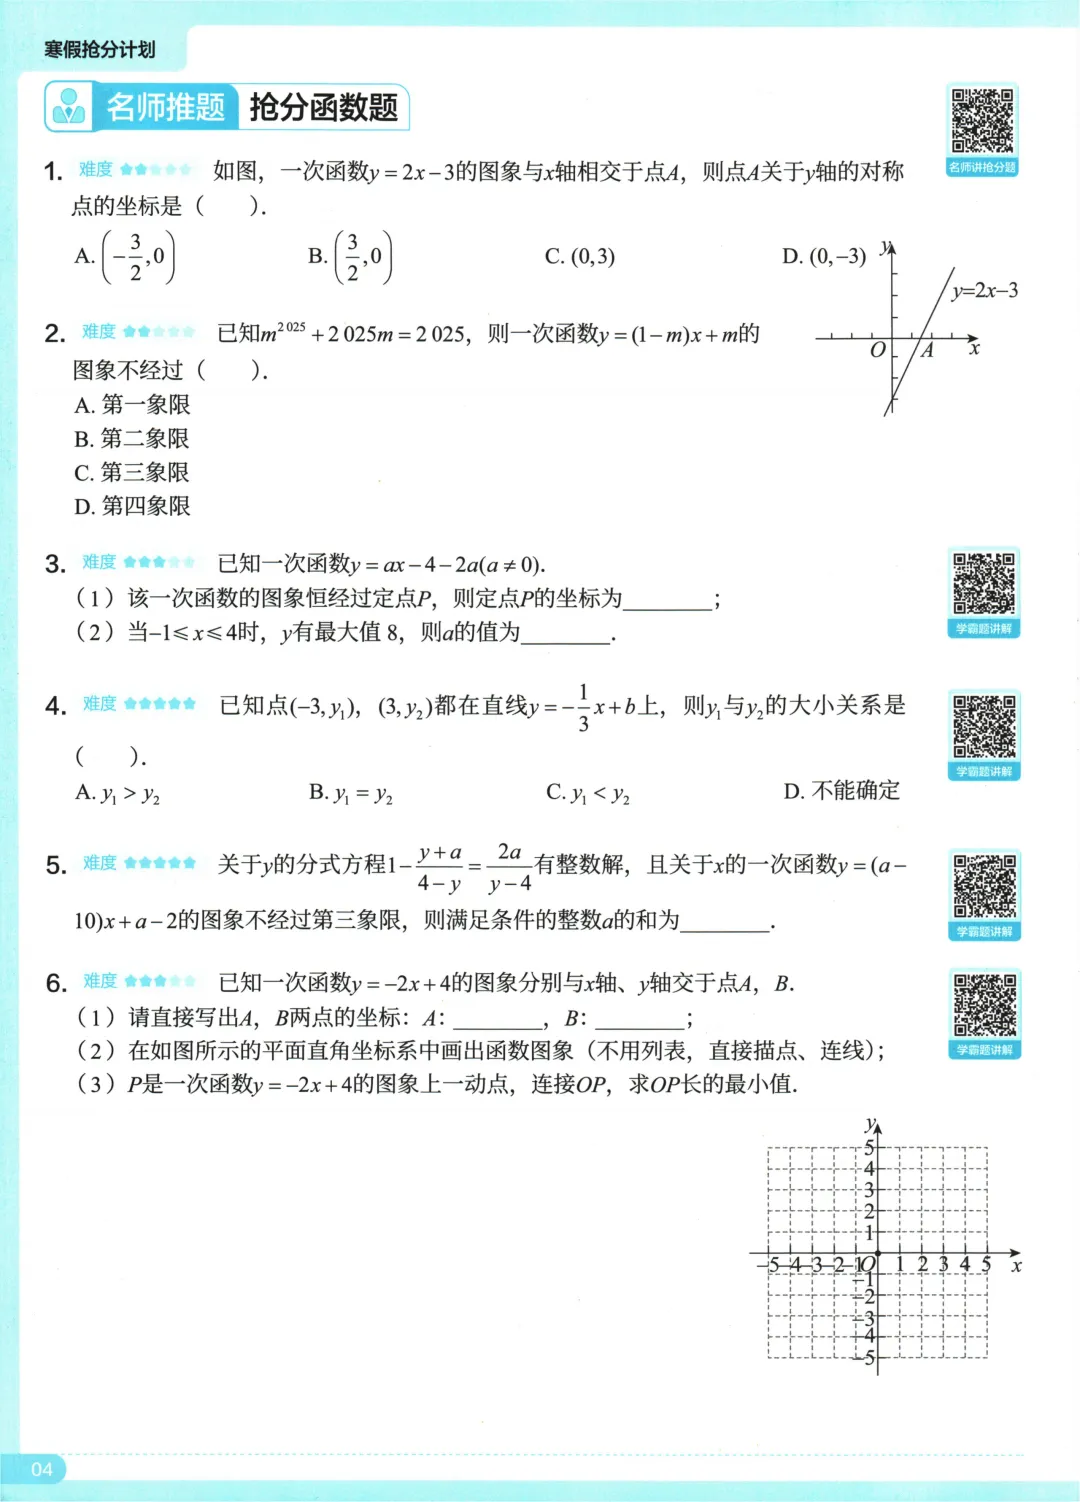 寒假抢分计划
名师推题 抢分函数题
名师讲抢分题
1. 难度 如图，一次函数y=2x-3的图象与x轴相交于点A，则点A关于y轴的对称
点的坐标是（　　）.
A. (-3/2,0) B. (3/2,0) C. (0,3) D. (0,-3)
y
y=2x-3
O A x
2. 难度 已知m²⁰²⁵+2 025m=2 025，则一次函数y=(1-m)x+m的
图象不经过（　　）.
A. 第一象限
B. 第二象限
C. 第三象限
D. 第四象限
3. 难度 已知一次函数y=ax-4-2a(a≠0).
（1）该一次函数的图象恒经过定点P，则定点P的坐标为________；
（2）当-1≤x≤4时，y有最大值 8，则a的值为________.
学霸题讲解
4. 难度 已知点(-3,y₁)，(3,y₂)都在直线y=-1/3x+b上，则y₁与y₂的大小关系是
（　　）.
A. y₁>y₂ B. y₁=y₂ C. y₁<y₂ D. 不能确定
学霸题讲解
5. 难度 关于y的分式方程1-(y+a)/(4-y)=2a/(y-4)有整数解，且关于x的一次函数y=(a-
10)x+a-2的图象不经过第三象限，则满足条件的整数a的和为________.
学霸题讲解
6. 难度 已知一次函数y=-2x+4的图象分别与x轴、y轴交于点A，B.
（1）请直接写出A，B两点的坐标：A：________，B：________；
（2）在如图所示的平面直角坐标系中画出函数图象（不用列表，直接描点、连线）；
（3）P是一次函数y=-2x+4的图象上一动点，连接OP，求OP长的最小值.
学霸题讲解
y
5
4
3
2
1
-5-4-3-2-1O 1 2 3 4 5 x
-1
-2
-3
-4
-5
04